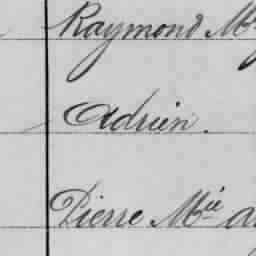 Raymond M
Adrien.
Pierre Mie a